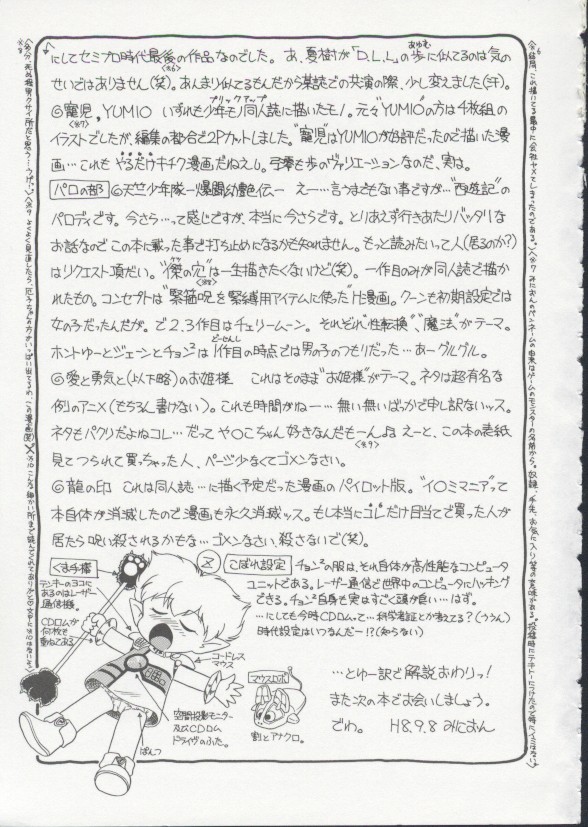 にしてセミプロ時代最後の作品なのでした。あ、夏樹が「D.L.L.」の歩に似てるのは気の
せいではありません(笑)。あんまり似てるもんだから某誌での共演の際、少し変えました(汗)
◎寵児。YUMIO いずれも少年モノ同人誌に描いたモノ。元々“YUMIO”の方は4枚組の
イラストでしたが、編集の都合で2Pカットしました。“寵児”はYUMIOが好評だったので描いた漫
画…これもやるだけキチク漫画だねえ。弓雫も歩のヴァリエーションなのだ、実は。
パロの部 ◎天竺少年隊ー爆闘幼艶伝ー えー…言うまでもない事ですが…“西遊記”の
パロディです。今さら…って感じですが、本当に今さらです。とりあえず行きあたりバッタリな
お話なのでこの本に載った事で打ち止めになるかも知れません。もっと読みたいって人(居るのか?)
はリクエスト頂だい。“僕の穴”は一生描きたくないけど(笑)。一作目のみが同人誌で描か
れたもの。コンセプトは“緊箍呪を緊縛用アイテムに使った”H漫画。クーンも初期設定では
女の子だったんだが。で2.3作目はチェリームーン。それぞれ“性転換”、“魔法”がテーマ。
ホントゆーとジェーンとチョン²は1作目の時点では男の子のつもりだった…あーグルグル。
◎愛と勇気と(以下略)のお姫様 これはそのまま“お姫様”がテーマ。ネタは超有名な
例のアニメ(もちろん書けない)。これも時間がねー…無い無いばっかで申し訳ないッス。
ネタもパクリだよねコレ…だってや○こちゃん好きなんだもーん♪ えーと、この本の表紙
見てつられて買っちゃった人、ページ少なくてゴメンなさい。
◎龍の印 これは同人誌…に描く予定だった漫画のパイロット版。“イ○ミマニア”って
本自体が消滅したので漫画も永久消滅ッス。もし本当にコレだけ目当てで買った人が
居たら呪い殺されるかもな…ゴメンなさい、殺さないで(笑)。
くま手棒
テンキーのヨコに
あるのはレーザー
通信機。
CDロムが
何枚も
重ねてある
こぼれ設定 チョン²の服は、それ自体が高性能なコンピュータ
ユニットである。レーザー通信で世界中のコンピュータにハッキング
できる。チョン²自身も実はすごく頭が良い…はず。
…にしても今時CDロムって…科学考証とか考えてる?(ううん)
時代設定はいつなんだー!?(知らない)
コードレス
マウス
空間投影モニター
及びCDロム
ドライヴのふた。
ぱんつ
マウスロボ
割とアナクロ。
…とゆー訳で解説おわりっ!
また次の本でお会いしましょう。
でわ。 H8.9.8 みにおん